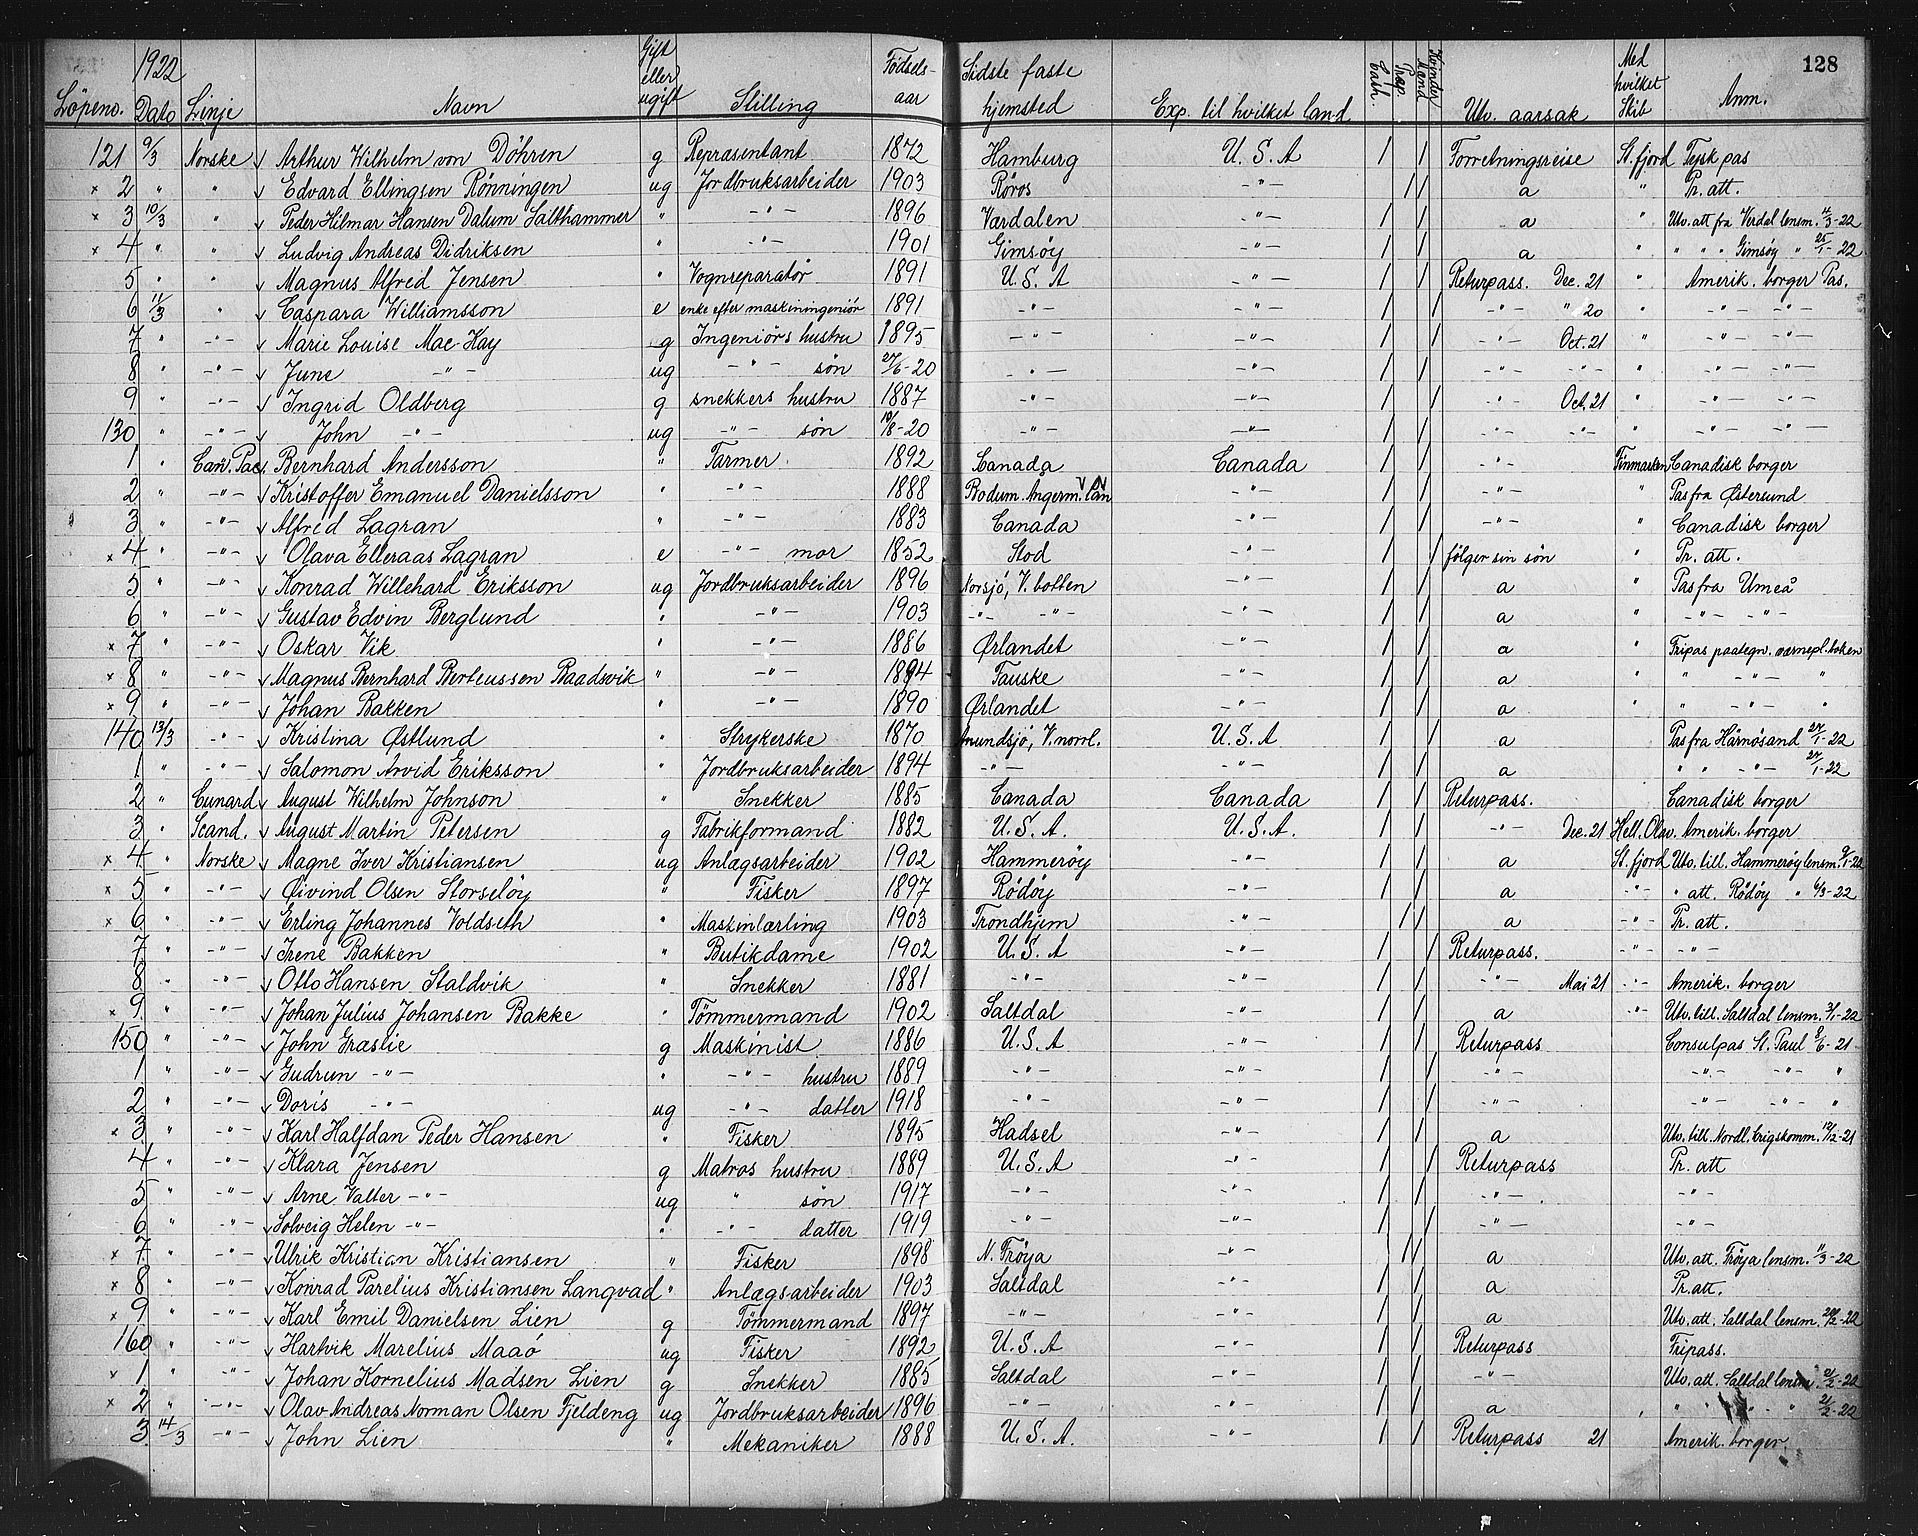 128
1922
Löpeno. Dato Linje Navn Gift eller ugift Stilling Födsels-aar Sidste faste hjemsted Exp. til hvilket land Utv. aarsak Med hvilket Skib Anm.
121 9/3 Norske Arthur Wilhelm von Döhren g Repræsentant 1872 Hamburg U.S.A / / Forretningsreise St.fjord Tysk pas
x 2 " " Edvard Ellingsen Rönningen ug Jordbruksarbeider 1903 Röros -"- / / a " Pr. att.
x 3 10/3 " Peder Hilmar Hansen Dalum Salthammer " -"- 1896 Værdalen -"- / / a " Utv. att fra Verdal lensm. 4/3-22
x 4 " " Ludvig Andreas Didriksen " -"- 1901 Gimsöy -"- / / a " " " " Gimsöy " 25/1-22
5 " " Magnus Alfred Jensen " Vognreparatör 1891 U.S.A -"- / / Returpass. Dec. 21 " Amerik. borger Pas.
6 11/3 " Caspara Williamsson e enke efter maskiningeniör 1891 -"- -"- / / -"- " 20 " -"- -"- -"-
7 " -"- Marie Louise Mac-Kay g Ingeniörs hustru 1895 -"- -"- / / -"- Oct. 21 " -"- -"- -"-
8 " -"- June -"- ug -"- sön 27/6-20 -"- -"- / / -"- -"- -"- -"- -"-
9 " -"- Ingrid Oldberg g snekkers hustru 1887 -"- -"- / / -"- Oct. 21 " -"- -"-
130 " -"- John -"- ug -"- sön 10/8-20 -"- -"- / / -"- -"- " -"- -"- -"-
1 " Can. Pac. Bernhard Andersson " Farmer 1892 Canada Canada / / -"- Finmarken Canadisk borger
2 " -"- Kristoffer Emanuel Danielsson " -"- 1888 Bodum. Angerm. län -"- / / -"- " Pas fra Østersund
3 " -"- Alfred Lagran " -"- 1883 Canada -"- / / -"- " Canadisk borger
x 4 " -"- Olava Elleraas Lagran e -"- mor 1852 Stod -"- / / fölger sin sön " Pr. att.
5 " -"- Konrad Willehard Eriksson ug Jordbruksarbeider 1896 Norsjö, V. botten -"- / / a " Pas fra Umeå
6 " -"- Gustav Edvin Berglund " -"- 1903 -"- -"- -"- / / a " -"- -"-
x 7 " -"- Oskar Vik " -"- 1886 Ørlandet -"- / / a " Fripas paategn. værnepl. boken
x 8 " -"- Magnus Bernhard Berteussen Baadsvik " -"- 1894 Fauske -"- / / a " " -"- "
x 9 " -"- Johan Bakken " -"- 1890 Ørlandet -"- / / a " " -"- "
140 13/3 -"- Kristina Østlund " Strykerske 1870 Anundsjö, V. norrl. U.S.A / / a Pas fra Härnösand 27/1-22
1 " -"- Salomon Arvid Eriksson " Jordbruksarbeider 1894 -"- -"- / / a " " -"- 27/1-22
2 " Cunard August Wilhelm Johnson " Snekker 1885 Canada Canada / / Returpass. Canadisk borger
3 " Scand. August Martin Petersen g Fabrikformand 1882 U.S.A. U.S.A. / / -"- Dec. 21 Hell. Olav. Amerik. borger
x 4 " Norske Magne Iver Kristiansen ug Anlægsarbeider 1902 Hammeröy -"- / / a St.fjord Utv. till. Hammeröy lensm. 9/1-22
x 5 " -"- Øivind Olsen Storselöy " Fisker 1897 Rödöy -"- / / a -"- " att. Rödöy " 6/3-22
x 6 " -"- Erling Johannes Voldseth " Maskinlærling 1903 Trondhjem -"- / / a -"- Pr. att.
7 " -"- Irene Bakken " Butikdame 1902 U.S.A -"- / / Returpass. -"- -"-
8 " -"- Otto Hansen Staldvik " Snekker 1881 -"- -"- / / -"- Mai 21 -"- Amerik. borger
x 9 " -"- Johan Julius Johansen Bakke " Tömmermand 1902 Saltdal -"- / / a -"- Utv. till. Saltdal lensm. 3/1-22
150 " -"- John Graslie g Maskinist 1886 U.S.A -"- / / Returpass Consulpas St. Paul 8/6-21
1 " -"- Gudrun -"- " -"- hustru 1889 -"- -"- / / -"- -"- -"- "
2 " -"- Doris -"- ug -"- datter 1918 -"- -"- / / -"- -"- -"- "
x 3 " -"- Karl Halfdan Peder Hansen " Fisker 1895 Hadsel -"- / / a Utv. till. Nordl. krigskomm. 12/12-21
4 " -"- Klara Jensen g Matros hustru 1889 U.S.A -"- / / Returpass Pr. att
5 " -"- Arne Valter -"- ug " sön 1917 -"- -"- / / -"- -"-
6 " -"- Solveig Helen -"- " -"- datter 1919 -"- -"- / / -"- -"-
x 7 " -"- Ulrik Kristian Kristiansen " Fisker 1898 N. Fröya -"- / / a Utv. att. Fröya lensm. 11/3-22
x 8 " -"- Konrad Parelius Kristiansen Langvad " Anlægsarbeider 1903 Saltdal -"- / / a Pr. att.
x 9 " -"- Karl Emil Danielsen Lien g Tömmermand 1897 -"- -"- / / a Utv. att. Saltdal lensm. 20/2-22
160 " -"- Hartvik Marelius Maaö ug Fisker 1892 U.S.A -"- / / Returpass Fripass.
x 1 " -"- Johan Kornelius Madsen Lien g Snekker 1885 Saltdal -"- / / -"- Utv. att. Saltdal lensm. 21/2-22
x 2 " -"- Olav Andreas Norman Olsen Fjeldeng ug Jordbruksarbeider 1896 -"- -"- / / a " " " " 21/2-22
3 14/3 -"- John Lien " Mekaniker 1888 U.S.A. -"- / / Returpass 21 Amerik. borger.